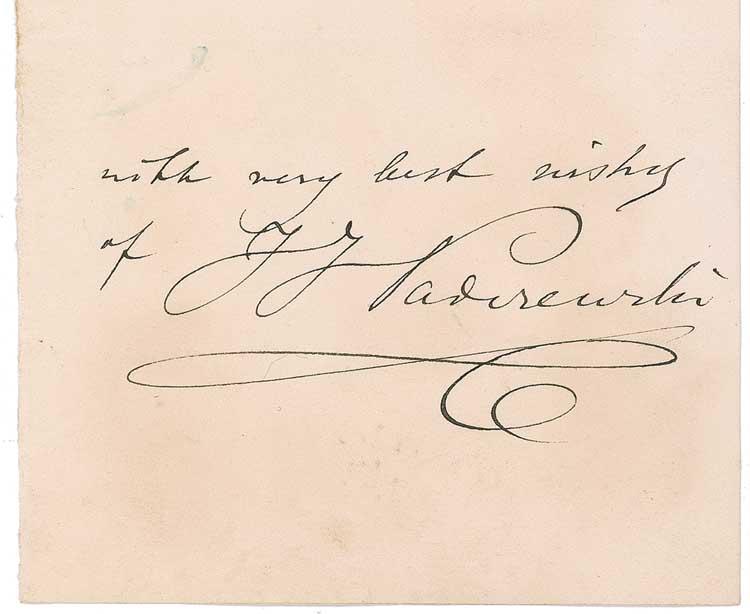 with very best wishes
of I J Paderewski